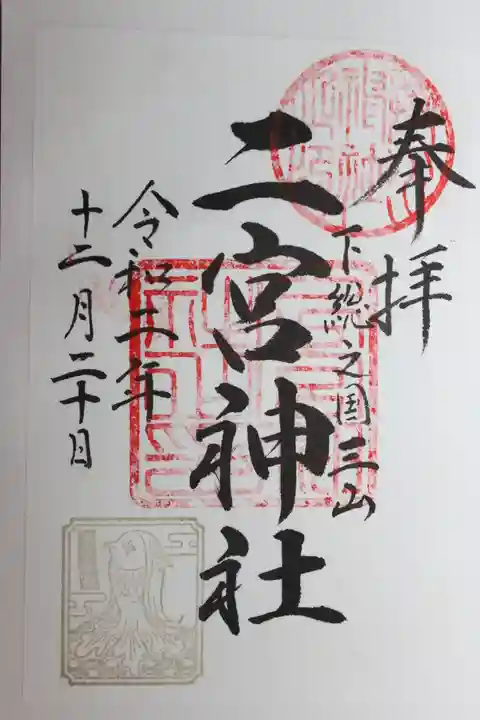 奉拝
下總之国三山
二宮神社
令和二年
十二月二十日